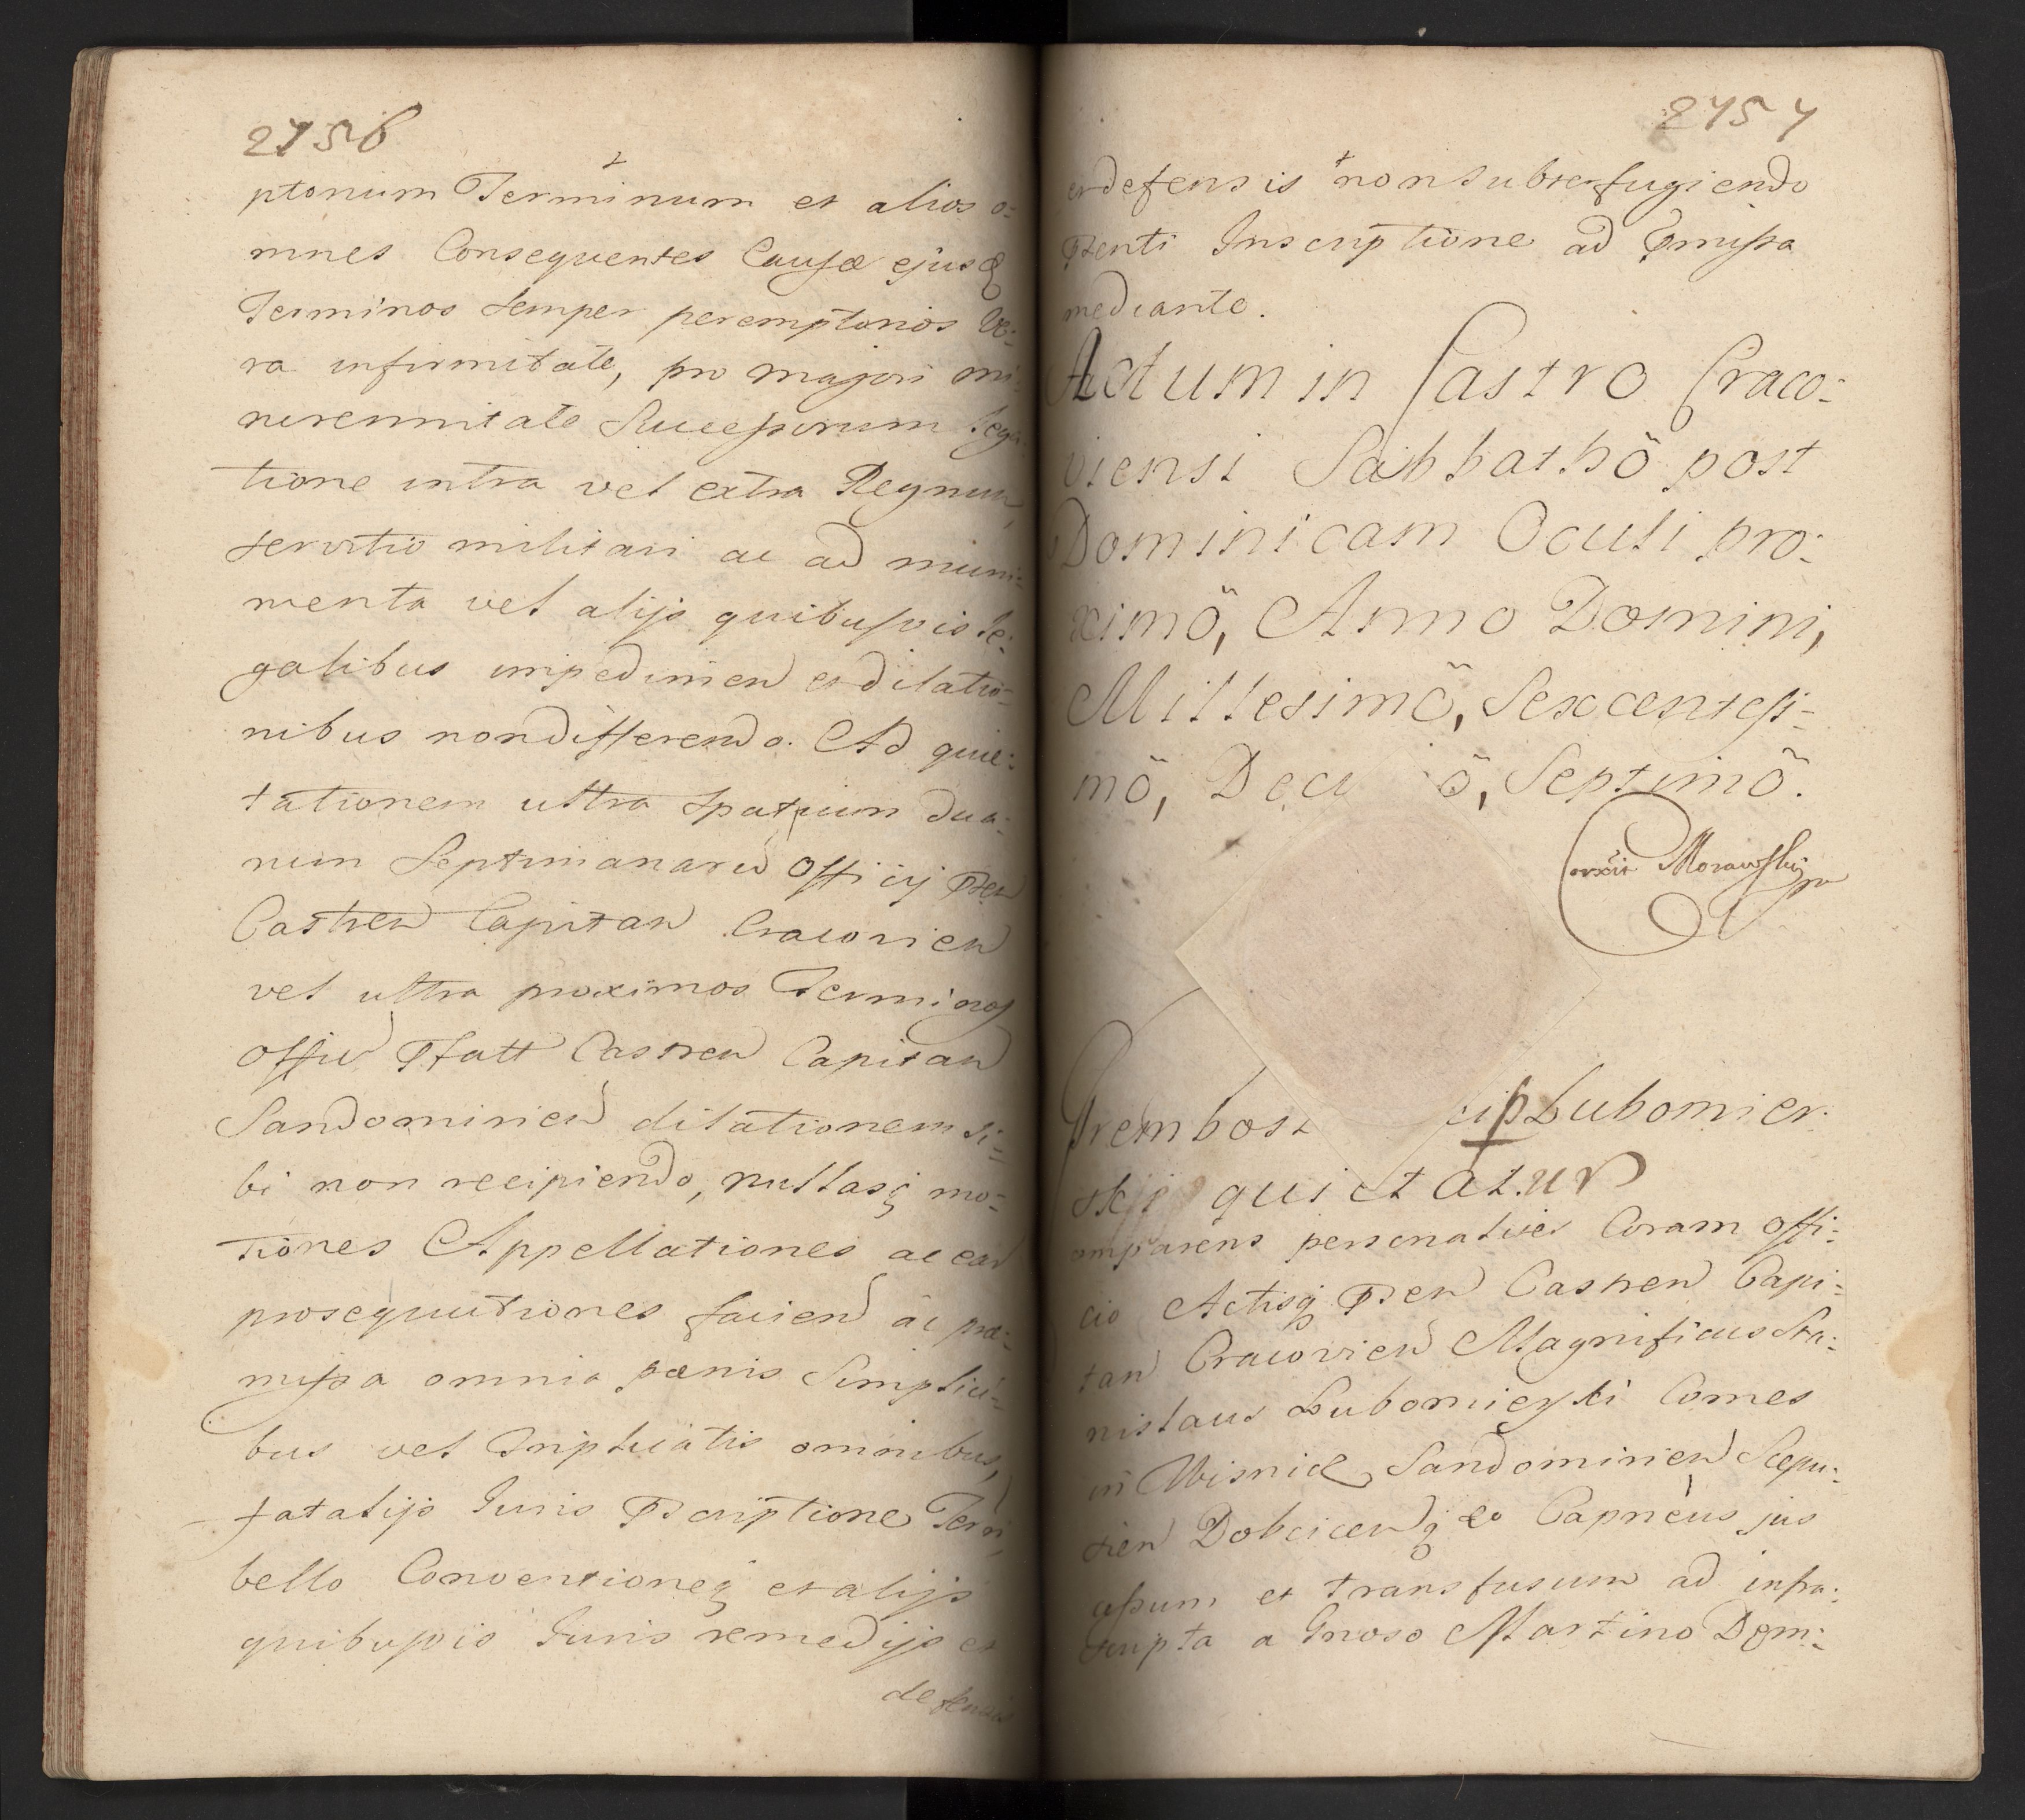 2756
ptorium Terminum et alios o=
mnes Consequentes Causæ ejusd
Terminos semper peremptorios Ve=
ra infirmitate, pro majori mi
nerennitate Successorum lega
tione intra vel extra Regnum,
servitio militari ac ad muni=
menta vel alijs quibusvis le=
galibus impedimen et dilatio=
nibus non differendo. Ad quie=
tationem ultra spatium dua=
rum Septimanaru Officij Psen
Castren Capitan Cracovien
vel ultra proximos Terminos
Offici Pfatt Castren Capitan
Sandomirien dilationem si=
bi non recipiendo, nullasq mo=
tiones Appellationes ac ear
prosequutiones facien ac præ=
missa omnia pænis Simplici=
bus vel Triplicatis omnibus,
fatalijs Iuris Pscriptione Terri,
bello Conventioneq et alijs
quibusvis Iuris remedijs et
defensis
2757
et defensis non subterfugiendo
Psenti Inscriptione ad Pmissa
mediante.
Actum in Castro Craco=
viensi Sabbathô post
Dominicam Oculi pro=
ximô, Anno Domini,
Millesimô, Sexcentesi=
mô, Deci ô, Septimô.
Corxit Morawskj
mp
Prembos cip Lubomier
skji quietatur
omparens personaliter Coram Offi=
cio Actisq Psen Castren Capi=
tan Cracovien Magnificus Sta=
nislaus Lubomierski Comes
in Wisnicz, Sandomirien Scepu=
sien Dobcicenq & Capneus jus
cessum et transfusum ad infra=
scripta a Gnoso Martino Dem=